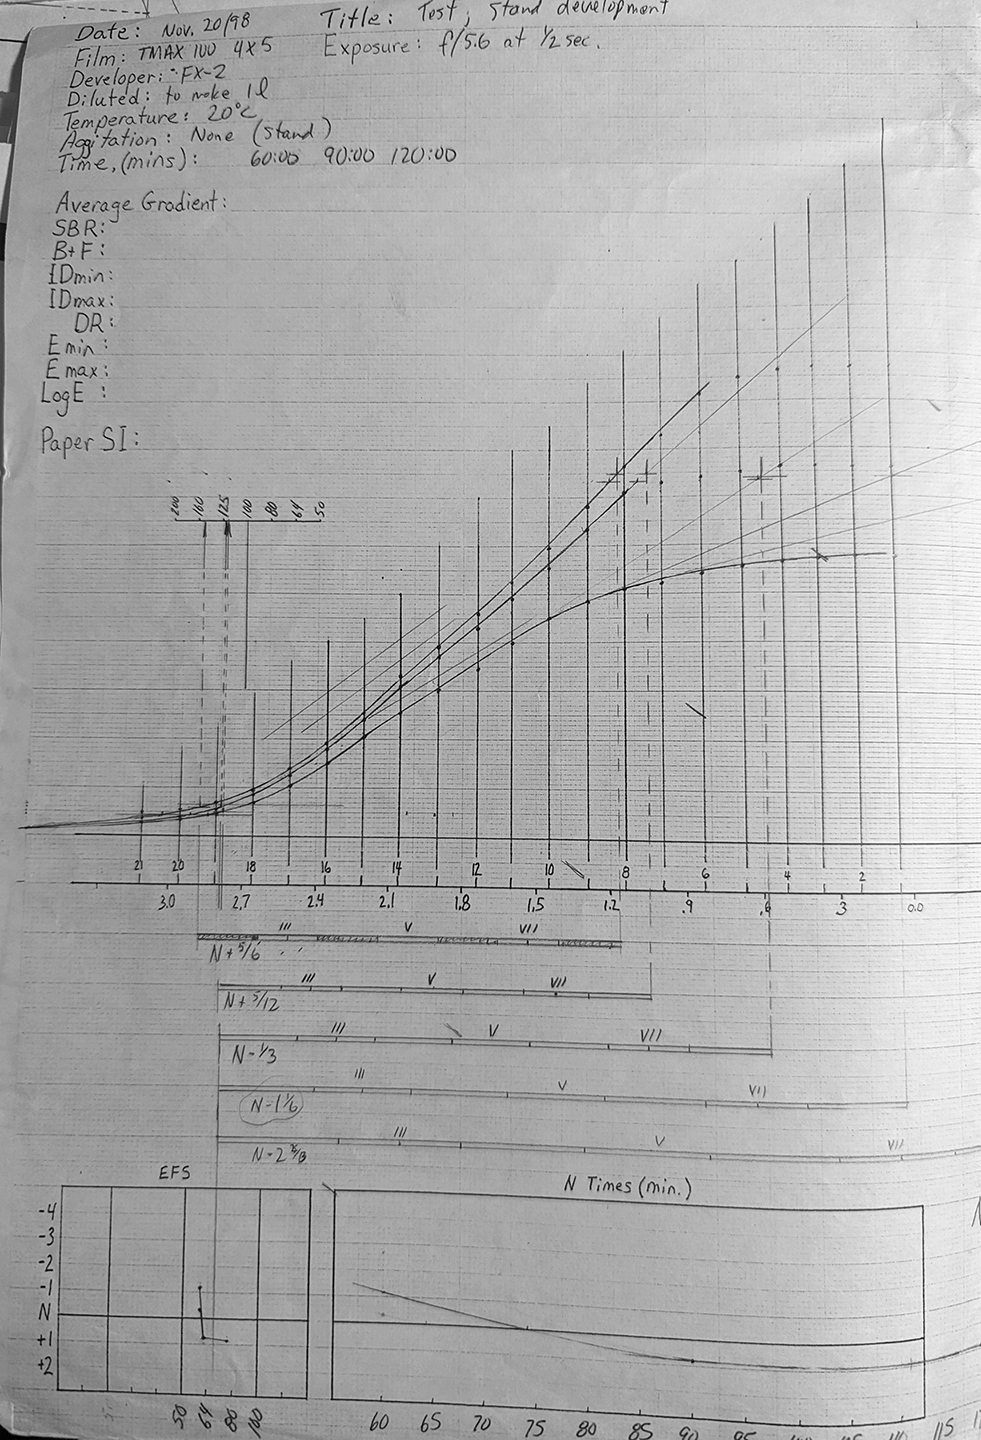 Date: Nov. 20/98
Title: Test, Stand development
Film: TMAX 100 4x5
Exposure: f/5.6 at 1/2 sec.
Developer: FX-2
Diluted: to make 1l
Temperature: 20°C
Aggitation: None (Stand)
Time, (mins): 60:00 90:00 120:00
Average Gradient:
SBR:
B+F:
IDmin:
IDmax:
DR:
Emin:
Emax:
LogE :
Paper SI:
200 160 125 100 80 64 50
21 20 18 16 14 12 10 8 6 4 2
3.0 2.7 2.4 2.1 1.8 1.5 1.2 .9 .6 .3 0.0
III V VII
N + 5/6
III V VII
N + 5/12
III V VII
N - 1/3
III V VII
N-1 1/6
III V VII
EFS
N Times (min.)
-4
-3
-2
-1
N
+1
+2
50 64 80 100
60 65 70 75 80 85 90 115